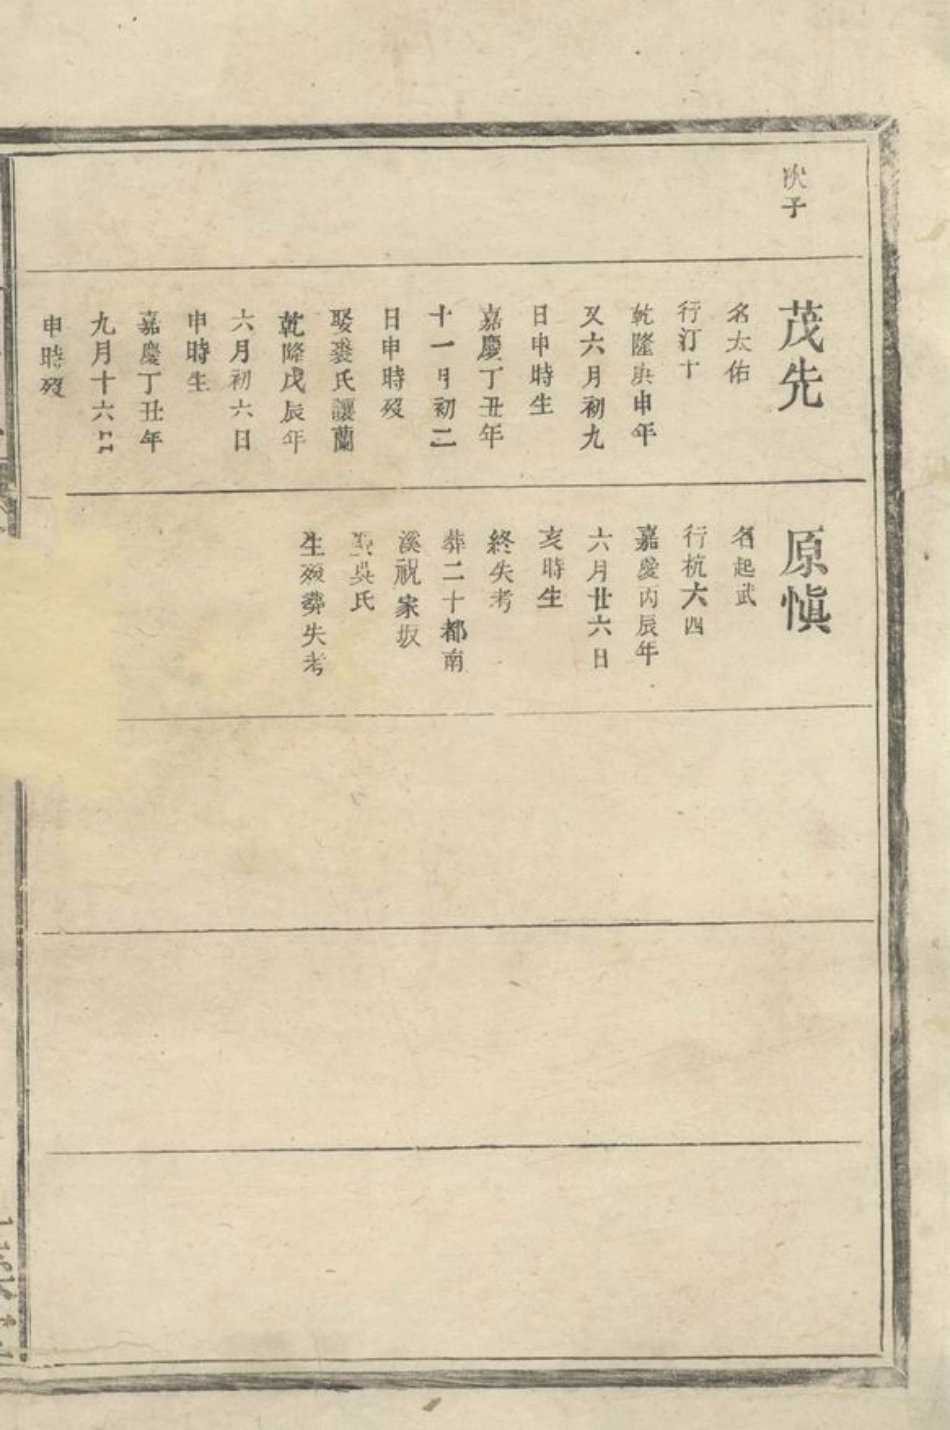 次子
茂先
名太佑
行汀十
乾隆庚申年
又六月初九
日申時生
嘉慶丁丑年
十一月初二
日申時歿
娶裘氏讓蘭
乾隆戊辰年
六月初六日
申時生
嘉慶丁丑年
九月十六日
申時歿
原愼
名起武
行杭六四
嘉慶丙辰年
六月廿六日
亥時生
終失考
葬二十都南
溪祝家坂
吳氏
生歿葬失考